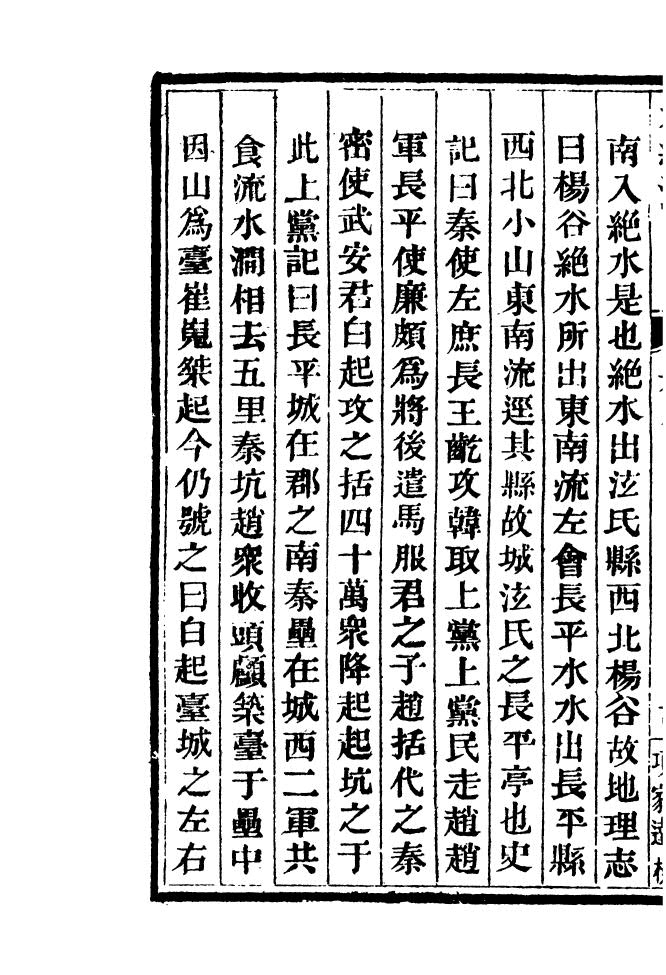 南入絶水是也絶水出泫氏縣西北楊谷故地理志
曰楊谷絶水所出東南流左會長平水水出長平縣
西北小山東南流逕其縣故城泫氏之長平亭也史
記曰秦使左庶長王齕攻韓取上黨上黨民走趙趙
軍長平使廉頗爲將後遣馬服君之子趙括代之秦
密使武安君白起攻之括四十萬衆降起起坑之于
此上黨記曰長平城在郡之南秦壘在城西二軍共
食流水澗相去五里秦坑趙衆收頭顱築臺于壘中
因山爲臺崔嵬桀起今仍號之曰白起臺城之左右